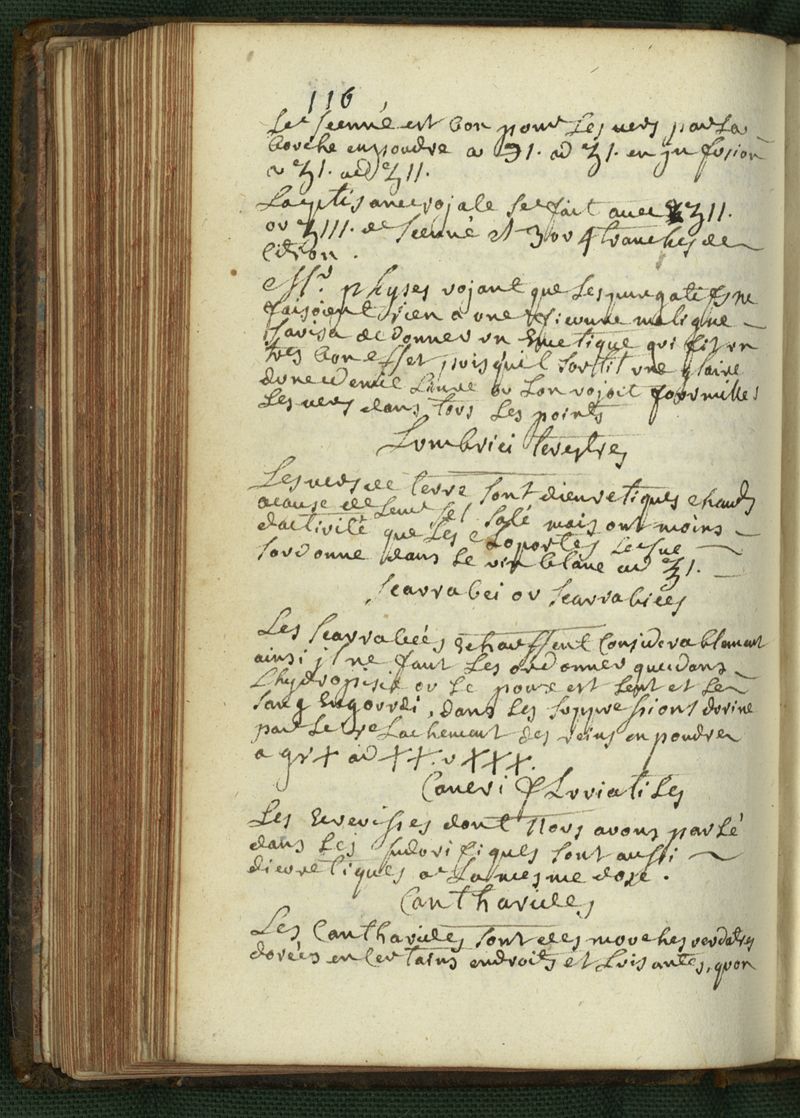 116
Le Senné est bon pour Les vers par La
bouche en poudre a ℈1. ad ʒ1. en jnfusion
a ʒ1. ad ʒ11.
La ptisane rojale se fait avec ʒ11.
ov ʒ111. de senné et 3 ov 4 tranches de
Citron.
Mr. physes vojant que Les purgatifs ne
faisoient rien a vne fievvre maligne
savisa de donner vn Emetique qui fit vn
tres bon effet puis quil sortit vne glaire
dvne demie Livre ov Lon vojoit fovrmilles
Les vers dans tovs Les points
Lvmbrici terestres
Les vers de terre sont dievretiques chauds
acause de Leur sel salé mais ont moins
dactivité que Les Cloportes Le suc
sordonne dans Le vin blanc ad ʒ1.
Scarrabei ov Scarrabées
Les Scarrabeés echauffent Considerablement
ainsi jl ne faut Les ordonner que dans
Lhydropisie ov Le poux est Lent et Le
sang Engovrdi, dans Les svppressions dvrine
par Le reLachement des reins en poudre
a gr X ad XX. v XXX.
Cancri fLvviatiLes
Les Ecrevisses dont Novs avons parLé
dans Les sudorifiques sont aussi
dievretiques a La mesme dose.
Cantharides
Les Cantharides sont des movches verdatres
doreés en Certains endroits et Lvisantes, qvon